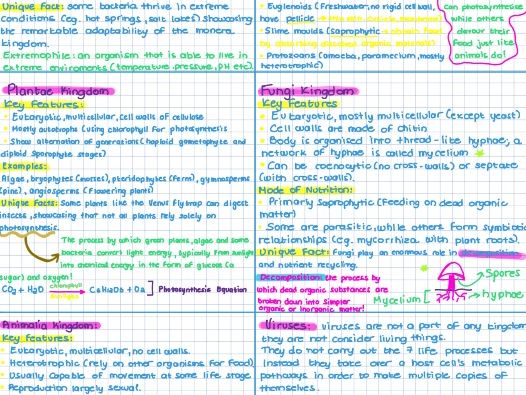 Unique Fact: some bacteria thrive in extreme
conditions (eg. hot springs, salt lakes) showcasing
the remarkable adaptability of the monera
kingdom.
Extremophile: an organism that is able to live in
extreme enviroments (temperature, pressure, pH etc).
Euglenoids (Freshwater, no rigid cell wall,
have pellicle
Slime moulds (saprophytic
Protozoans (amoeba, paramecium, mostly
heterotrophic)
can photosynthesise
while others
devour their
food just like
animals do!
Plantae Kingdom
Key Features:
Eukaryotic, multicellular, cell walls of cellulose
Mostly autotrophs (using chlorophyll for photosynthesis)
Show alternation of generations (haploid gametophyte and
diploid sporophyte stages)
Examples:
Algae, bryophytes (mosses), pteridophytes (fern), gymnosperms
(pine), angiosperms (flowering plants)
Unique Facts: Some plants like the Venus flytrap can digest
insects, showcasing that not all plants rely solely on
photosynthesis.
The process by which green plants, algae and some
bacteria convert light energy, typically from sunlight
into chemical energy in the form of glucose (a
sugar) and oxygen!
CO2 + H2O chlorophyll sunlight C6H12O6 + O2 ] Photosynthesis Equation
Fungi Kingdom
Key Features
Eukaryotic, mostly multicellular (except yeast)
Cell walls are made of chitin
Body is organised into thread-like hyphae, a
network of hyphae is called mycelium
Can be coenocytic (no cross-walls) or septate
(with cross-walls).
Mode of Nutrition:
Primarily Saprophytic (Feeding on dead organic
matter)
Some are parasitic, while others form symbiotic
relationships (eg. mycorrhiza with plant roots).
Unique Fact: Fungi play an enormous role in decomposition
and nutrient recycling.
Decomposition: the process by
which dead organic substances are
broken down into simpler
organic or inorganic matter!
Spores
hyphae
Mycelium
Animalia Kingdom:
Key features:
Eukaryotic, multicellular, no cell walls.
Heterotrophic (rely on other organisms for food)
Usually capable of movement at some life stage
Reproduction largely sexual.
Viruses: viruses are not a part of any kingdom
they are not consider living things.
They do not carry out the 7 life processes but
instead they take over a host cell's metabolic
pathways in order to make multiple copies of
themselves.